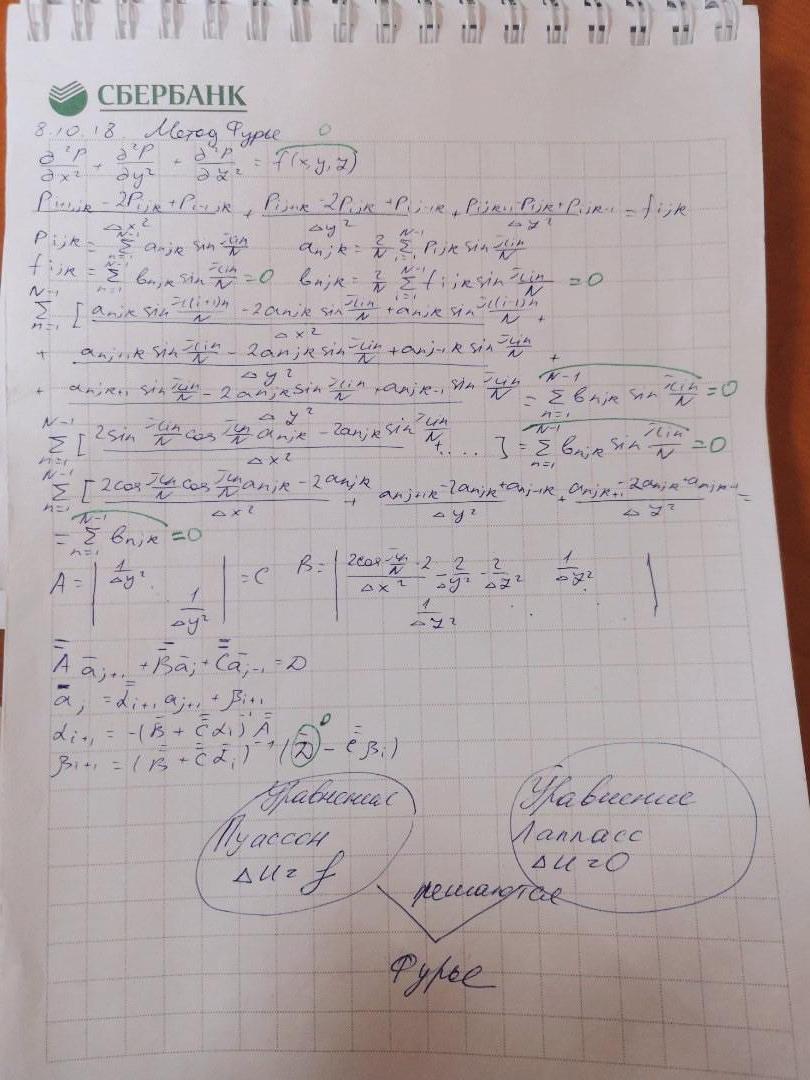 СБЕРБАНК
8.10.18. Метод Фурье 0
∂²P/∂x² + ∂²P/∂y² + ∂²P/∂z² = f(x,y,z)
(Pi+1jk − 2Pijk + Pi-1jk)/Δx² + (Pij+1k − 2Pijk + Pij-1k)/Δy² + (Pijk+1 − Pijk + Pijk-1)/Δy² = fijk
Pijk = Σ(n=1..N-1) anjk sin(πin/N) anjk = 2/N Σ(i=1..N-1) Pijk sin(πin/N)
fijk = Σ(n=1..N-1) bnjk sin(πin/N) = 0 bnjk = 2/N Σ(i=1..N-1) fijk sin(πin/N) = 0
Σ(n=1..N-1) [ (anjk sin(π(i+1)n/N) − 2anjk sin(πin/N) + anjk sin(π(i-1)n/N))/Δx² +
+ (anj+1k sin(πin/N) − 2anjk sin(πin/N) + anj-1k sin(πin/N))/Δy² +
+ (anjk+1 sin(πin/N) − 2anjk sin(πin/N) + anjk-1 sin(πin/N))/Δy² = Σ(n=1..N-1) bnjk sin(πin/N) = 0
Σ(n=1..N-1) [ (2sin(πin/N) cos(πn/N) anjk − 2anjk sin(πin/N))/Δx² + .... ] = Σ(n=1..N-1) bnjk sin(πin/N) = 0
Σ(n=1..N-1) [ (2cos(πin/N) cos(πin/N) anjk − 2anjk)/Δx² + (anj+1k − 2anjk + anj-1k)/Δy² + (anjk+1 − 2anjk + anjk-1)/Δy² =
= Σ(n=1..N-1) bnjk = 0
A = | 1/Δy² . 1/Δy² | = C B = | (2cos(πin/N) − 2)/Δx² − 2/Δy² − 2/Δz² 1/Δy² 1/Δz² . . |
A aj+1 + B aj + C aj-1 = D
aj = αi+1 aj+1 + βi+1
αi+1 = −(B + C αi)⁻¹ A
βi+1 = (B + C αi)⁻¹ (D − C βi) 0
Уравнение
Пуассон
Δu = f
Уравнение
Лапласс
Δu = 0
решаются
Фурье